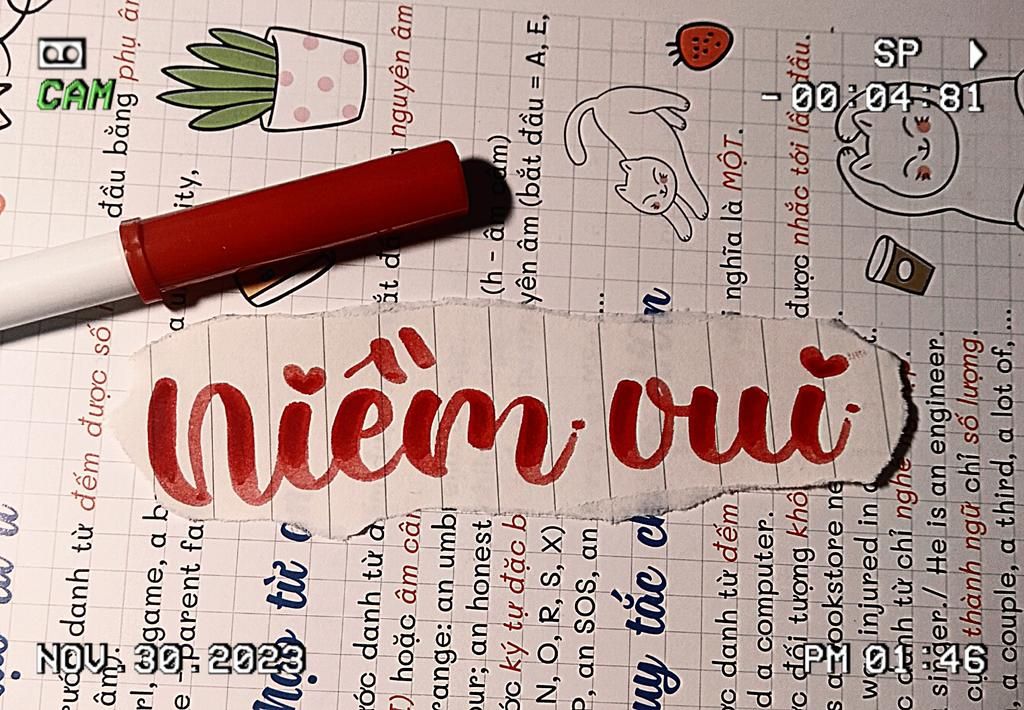 SP
CAM
-00:04:81
niềm vui
NOV. 30 2023
PM 01:46
đầu bằng phụ âm
nguyên âm
(h - âm câm)
yên âm (bắt đầu = A, E,
nghĩa là MỘT.
được nhắc tới lần đầu.
đếm được số
danh từ đếm được số
a game, a b
parent fa
Mạo từ
ước danh từ đ
) hoặc âm câ
range: an umb
our; an honest
ớc ký tự đặc b
N, O, R, S, X)
P, an SOS, an
uy tắc ch
ớc danh từ đếm
d a computer.
ớc đối tượng khô
s a bookstore ne
injured in
c danh từ chỉ nghề
singer./ He is an engineer.
cụm thành ngữ chỉ số lượng.
a couple, a third, a lot of,...